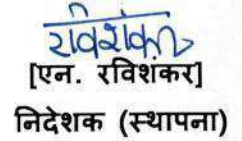 रविशंकर
[एन. रविशंकर]
निदेशक (स्थापना)